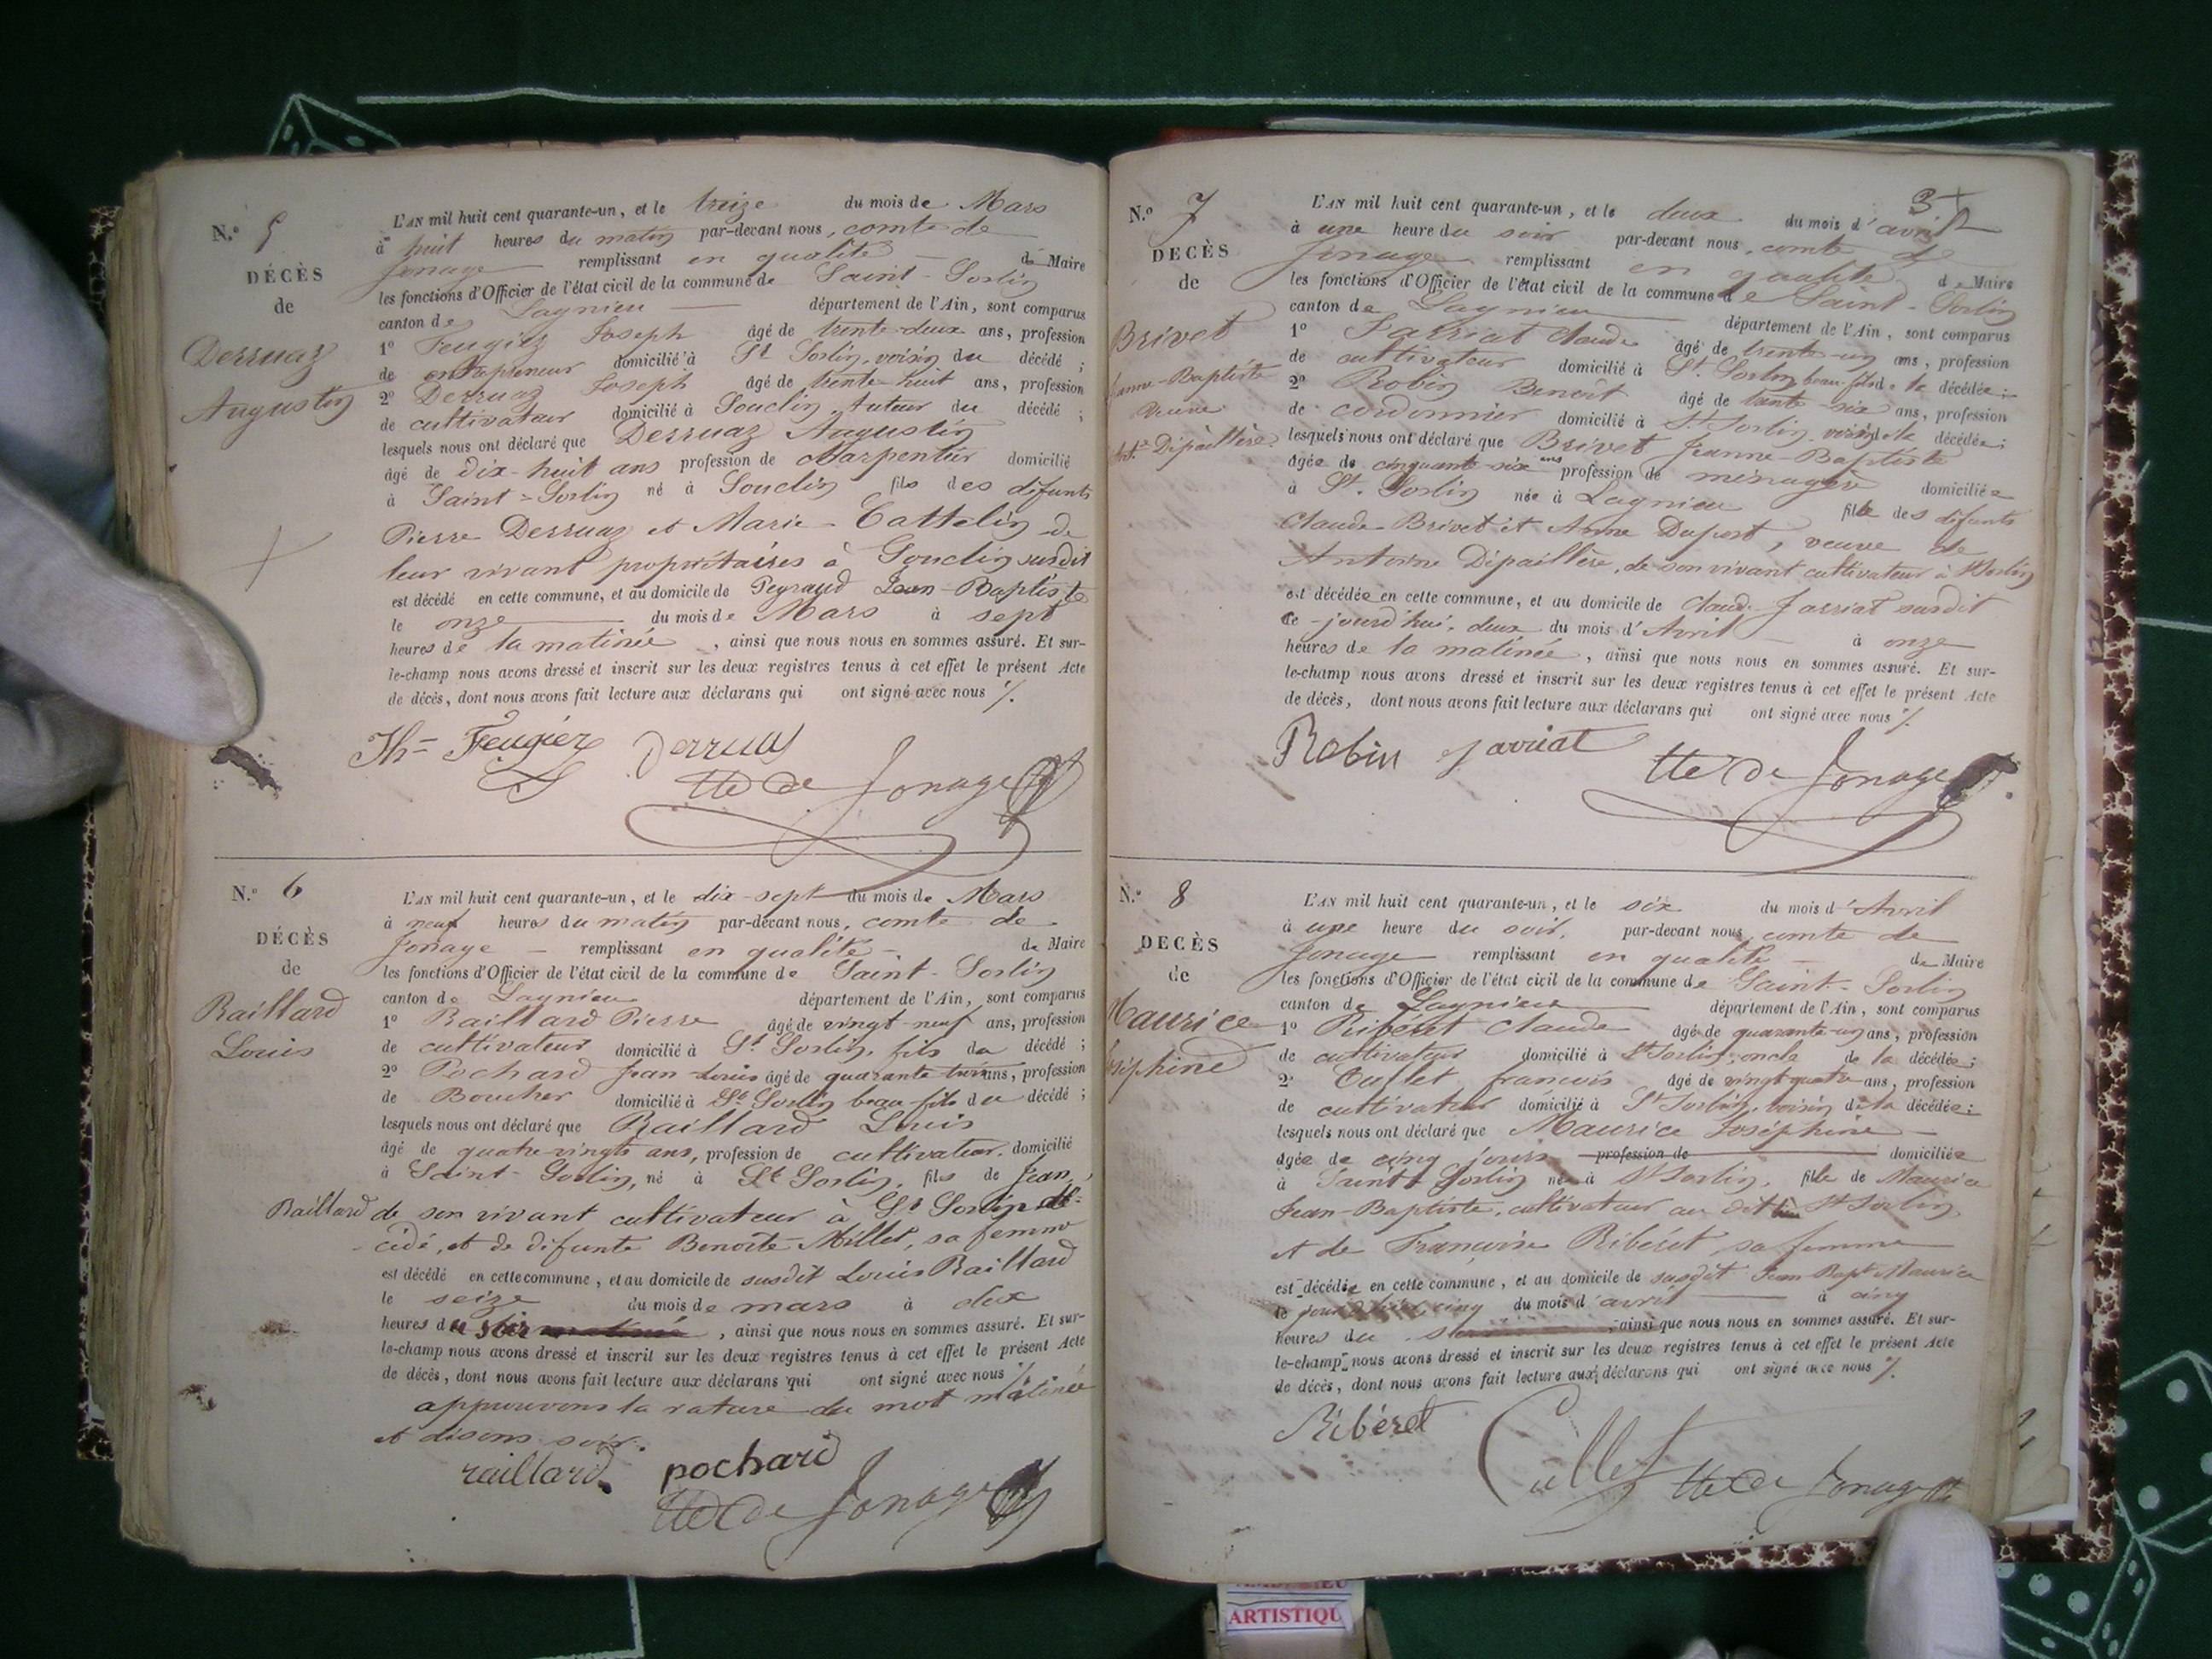 N.o 5
DÉCÈS
de
Derruaz
Augustin
L'AN mil huit cent quarante-un, et le treize du mois de Mars
à huit heures du matin par-devant nous, comte de
Jonage remplissant en qualité de Maire
les fonctions d'Officier de l'état civil de la commune de Saint-Sorlin
canton de Lagnieu département de l'Ain, sont comparus
1o Feugier Joseph âgé de trente-deux ans, profession
de entrepreneur domicilié à St Sorlin, voisin du décédé ;
2o Derruaz Joseph âgé de trente-huit ans, profession
de cultivateur domicilié à Souclin, tuteur du décédé ;
lesquels nous ont déclaré que Derruaz Augustin
âgé de dix-huit ans profession de charpentier domicilié
à Saint-Sorlin né à Souclin fils des défunts
Pierre Derruaz et Marie Cattelin de
leur vivant propriétaires à Souclin susdit
est décédé en cette commune, et au domicile de Peyraud Jean-Baptiste
le onze du mois de Mars à sept
heures de la matinée, ainsi que nous nous en sommes assuré. Et sur-
le-champ nous avons dressé et inscrit sur les deux registres tenus à cet effet le présent Acte
de décès, dont nous avons fait lecture aux déclarans qui ont signé avec nous
Feugier Derruas
de Jonage
N.o 6
DÉCÈS
de
Raillard
Louis
L'AN mil huit cent quarante-un, et le dix-sept du mois de Mars
à neuf heures du matin par-devant nous, comte de
Jonage remplissant en qualité de Maire
les fonctions d'Officier de l'état civil de la commune de Saint-Sorlin
canton de Lagnieu département de l'Ain, sont comparus
1o Raillard Pierre âgé de vingt-neuf ans, profession
de cultivateur domicilié à St Sorlin, fils du décédé ;
2o Pochard Jean-Louis âgé de quarante-trois ans, profession
de Boucher domicilié à St Sorlin beau-fils du décédé ;
lesquels nous ont déclaré que Raillard Louis
âgé de quatre-vingts ans, profession de cultivateur, domicilié
à Saint-Sorlin, né à St Sorlin, fils de Jean
Raillard de son vivant cultivateur à St Sorlin dé-
cédé, et de défunte Benoîte Millet, sa femme
est décédé en cette commune, et au domicile de susdit Louis Raillard
le seize du mois de mars à deux
heures du soir matinée, ainsi que nous nous en sommes assuré. Et sur-
le-champ nous avons dressé et inscrit sur les deux registres tenus à cet effet le présent Acte
de décès, dont nous avons fait lecture aux déclarans qui ont signé avec nous
approuvons la rature du mot matinée
et disons soir.
raillard pochard
de Jonage
3
N.o 7
DÉCÈS
de
Brivet
Jeanne-Baptiste
veuve
Ant.e Dépaillère
L'AN mil huit cent quarante-un, et le deux du mois d'avril
à une heure du soir par-devant nous, comte de
Jonage remplissant en qualité de Maire
les fonctions d'Officier de l'état civil de la commune de Saint-Sorlin
canton de Lagnieu département de l'Ain, sont comparus
1o Jarriat Claude âgé de trente-un ans, profession
de cultivateur domicilié à St Sorlin beau-fils de la décédée ;
2o Robin Benoît âgé de trente-six ans, profession
de cordonnier domicilié à St Sorlin, voisin de la décédée ;
lesquels nous ont déclaré que Brivet Jeanne-Baptiste
âgée de cinquante-six ans profession de ménagère domiciliée
à St. Sorlin née à Lagnieu fille des défunts
Claude Brivet et Anne Duport, veuve de
Antoine Dépaillère, de son vivant cultivateur à St Sorlin
est décédée en cette commune, et au domicile de Claude Jarriat susdit
ce-jourd'hui, deux du mois d'Avril à onze
heures de la matinée, ainsi que nous nous en sommes assuré. Et sur-
le-champ nous avons dressé et inscrit sur les deux registres tenus à cet effet le présent Acte
de décès, dont nous avons fait lecture aux déclarans qui ont signé avec nous
Robin jarriat
de Jonage
N.o 8
DÉCÈS
de
Maurice
Joséphine
L'AN mil huit cent quarante-un, et le six du mois d'Avril
à une heure du soir, par-devant nous, comte de
Jonage remplissant en qualité de Maire
les fonctions d'Officier de l'état civil de la commune de Saint-Sorlin
canton de Lagnieu département de l'Ain, sont comparus
1o Ribéret Claude âgé de quarante-un ans, profession
de cultivateur domicilié à St Sorlin, oncle de la décédée ;
2o Cullet françois âgé de vingt-quatre ans, profession
de cultivateur domicilié à St Sorlin, voisin de la décédée ;
lesquels nous ont déclaré que Maurice Joséphine
âgée de cinq jours profession de domiciliée
à Saint-Sorlin née à St Sorlin, fille de Maurice
Jean-Baptiste, cultivateur au dit St Sorlin,
et de Françoise Ribéret, sa femme
est décédée en cette commune, et au domicile de susdit Jean-Bapt. Maurice
le jour d'hier, cinq du mois d'avril à cinq
heures du soir, ainsi que nous nous en sommes assuré. Et sur-
le-champ nous avons dressé et inscrit sur les deux registres tenus à cet effet le présent Acte
de décès, dont nous avons fait lecture aux déclarans qui ont signé avec nous
Ribéret Cullet de Jonage
ARTISTIQU